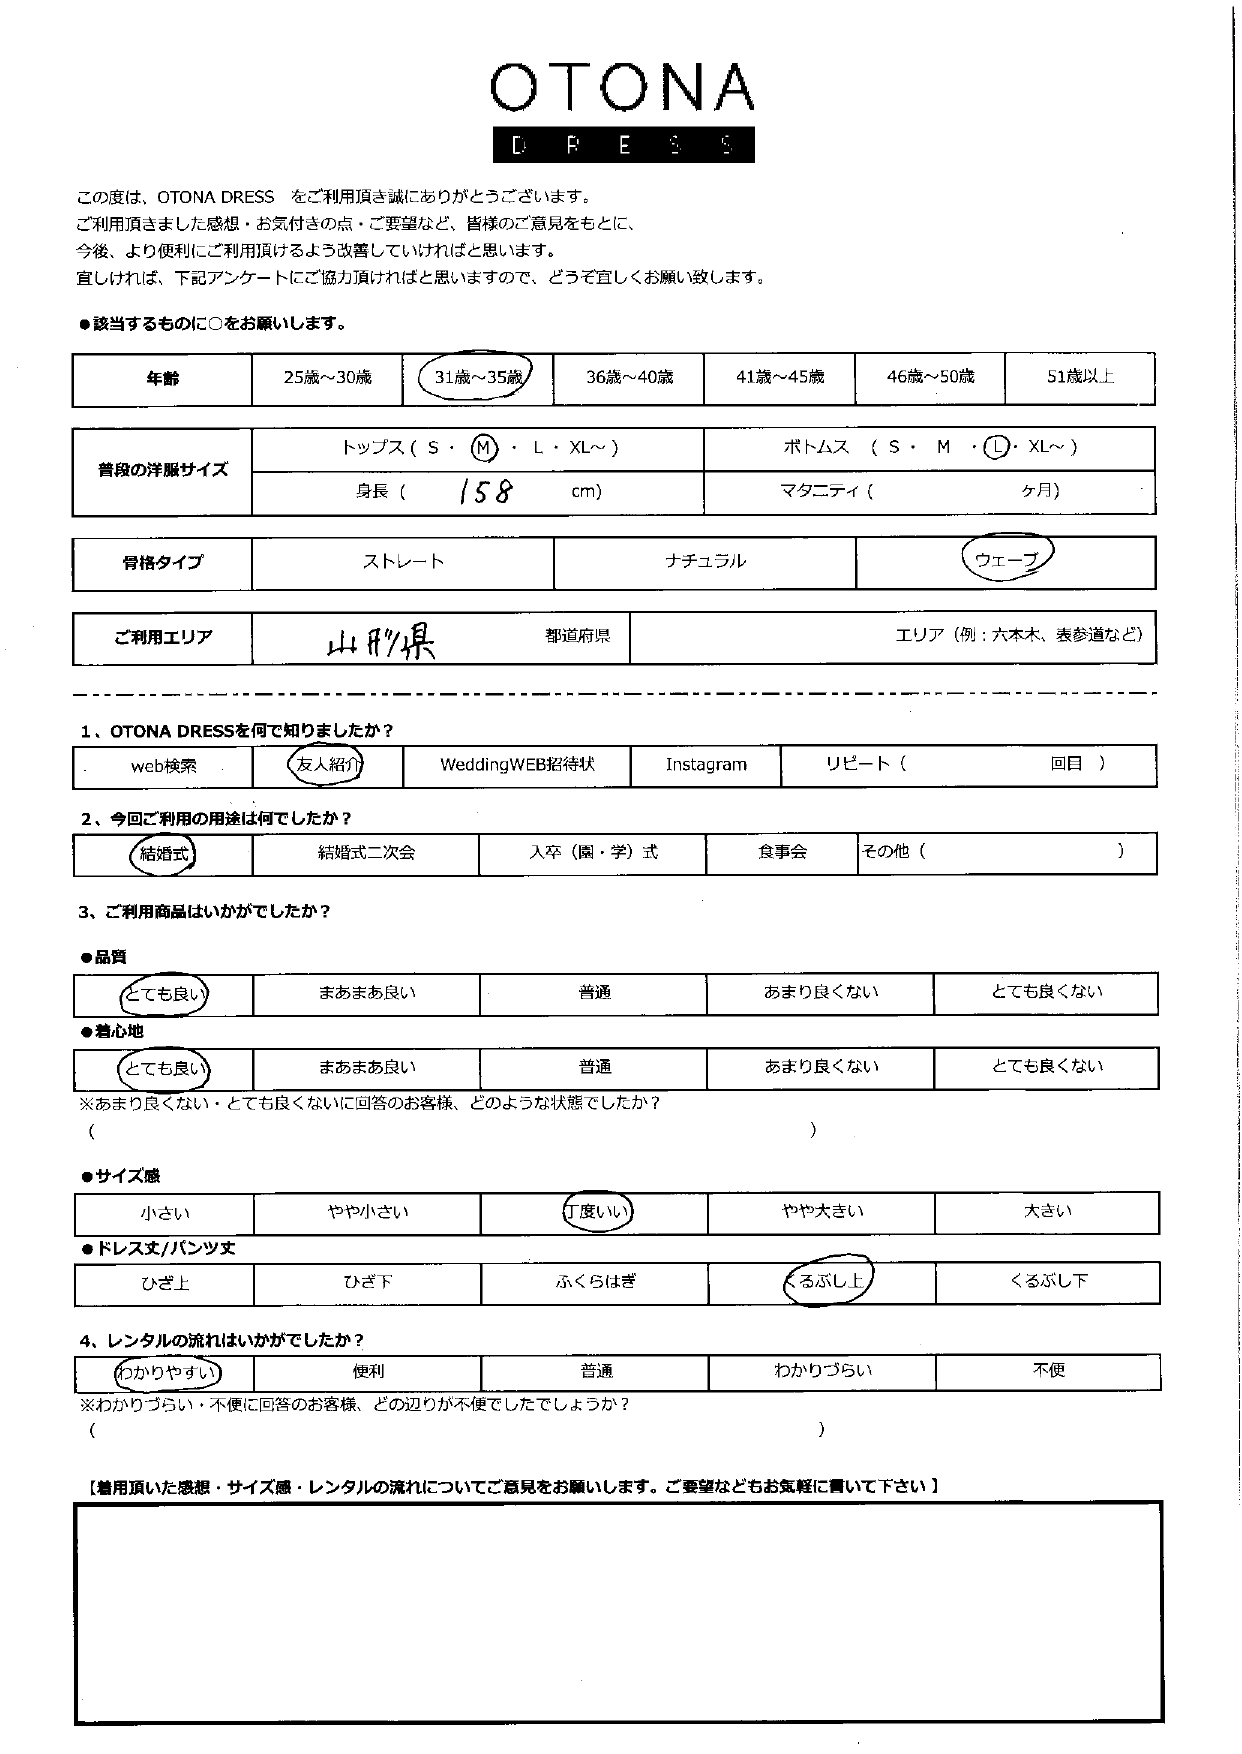 OTONA
DRESS
この度は、OTONA DRESS をご利用頂き誠にありがとうございます。
ご利用頂きました感想・お気付きの点・ご要望など、皆様のご意見をもとに、
今後、より便利にご利用頂けるよう改善していければと思います。
宜しければ、下記アンケートにご協力頂ければと思いますので、どうぞ宜しくお願い致します。
●該当するものに○をお願いします。
年齢 25歳～30歳 31歳～35歳 36歳～40歳 41歳～45歳 46歳～50歳 51歳以上
普段の洋服サイズ
トップス ( S ・ M ・ L ・ XL～ ) ボトムス ( S ・ M ・ L ・ XL～ )
身長 ( 158 cm) マタニティ ( ヶ月)
骨格タイプ ストレート ナチュラル ウェーブ
ご利用エリア 山形県 都道府県 エリア（例：六本木、表参道など）
1、OTONA DRESSを何で知りましたか？
web検索 友人紹介 WeddingWEB招待状 Instagram リピート ( 回目 )
2、今回ご利用の用途は何でしたか？
結婚式 結婚式二次会 入卒（園・学）式 食事会 その他 ( )
3、ご利用商品はいかがでしたか？
●品質
とても良い まあまあ良い 普通 あまり良くない とても良くない
●着心地
とても良い まあまあ良い 普通 あまり良くない とても良くない
※あまり良くない・とても良くないに回答のお客様、どのような状態でしたか？
( )
●サイズ感
小さい やや小さい 丁度いい やや大きい 大きい
●ドレス丈/パンツ丈
ひざ上 ひざ下 ふくらはぎ くるぶし上 くるぶし下
4、レンタルの流れはいかがでしたか？
わかりやすい 便利 普通 わかりづらい 不便
※わかりづらい・不便に回答のお客様、どの辺りが不便でしたでしょうか？
( )
【着用頂いた感想・サイズ感・レンタルの流れについてご意見をお願いします。ご要望などもお気軽に書いて下さい 】